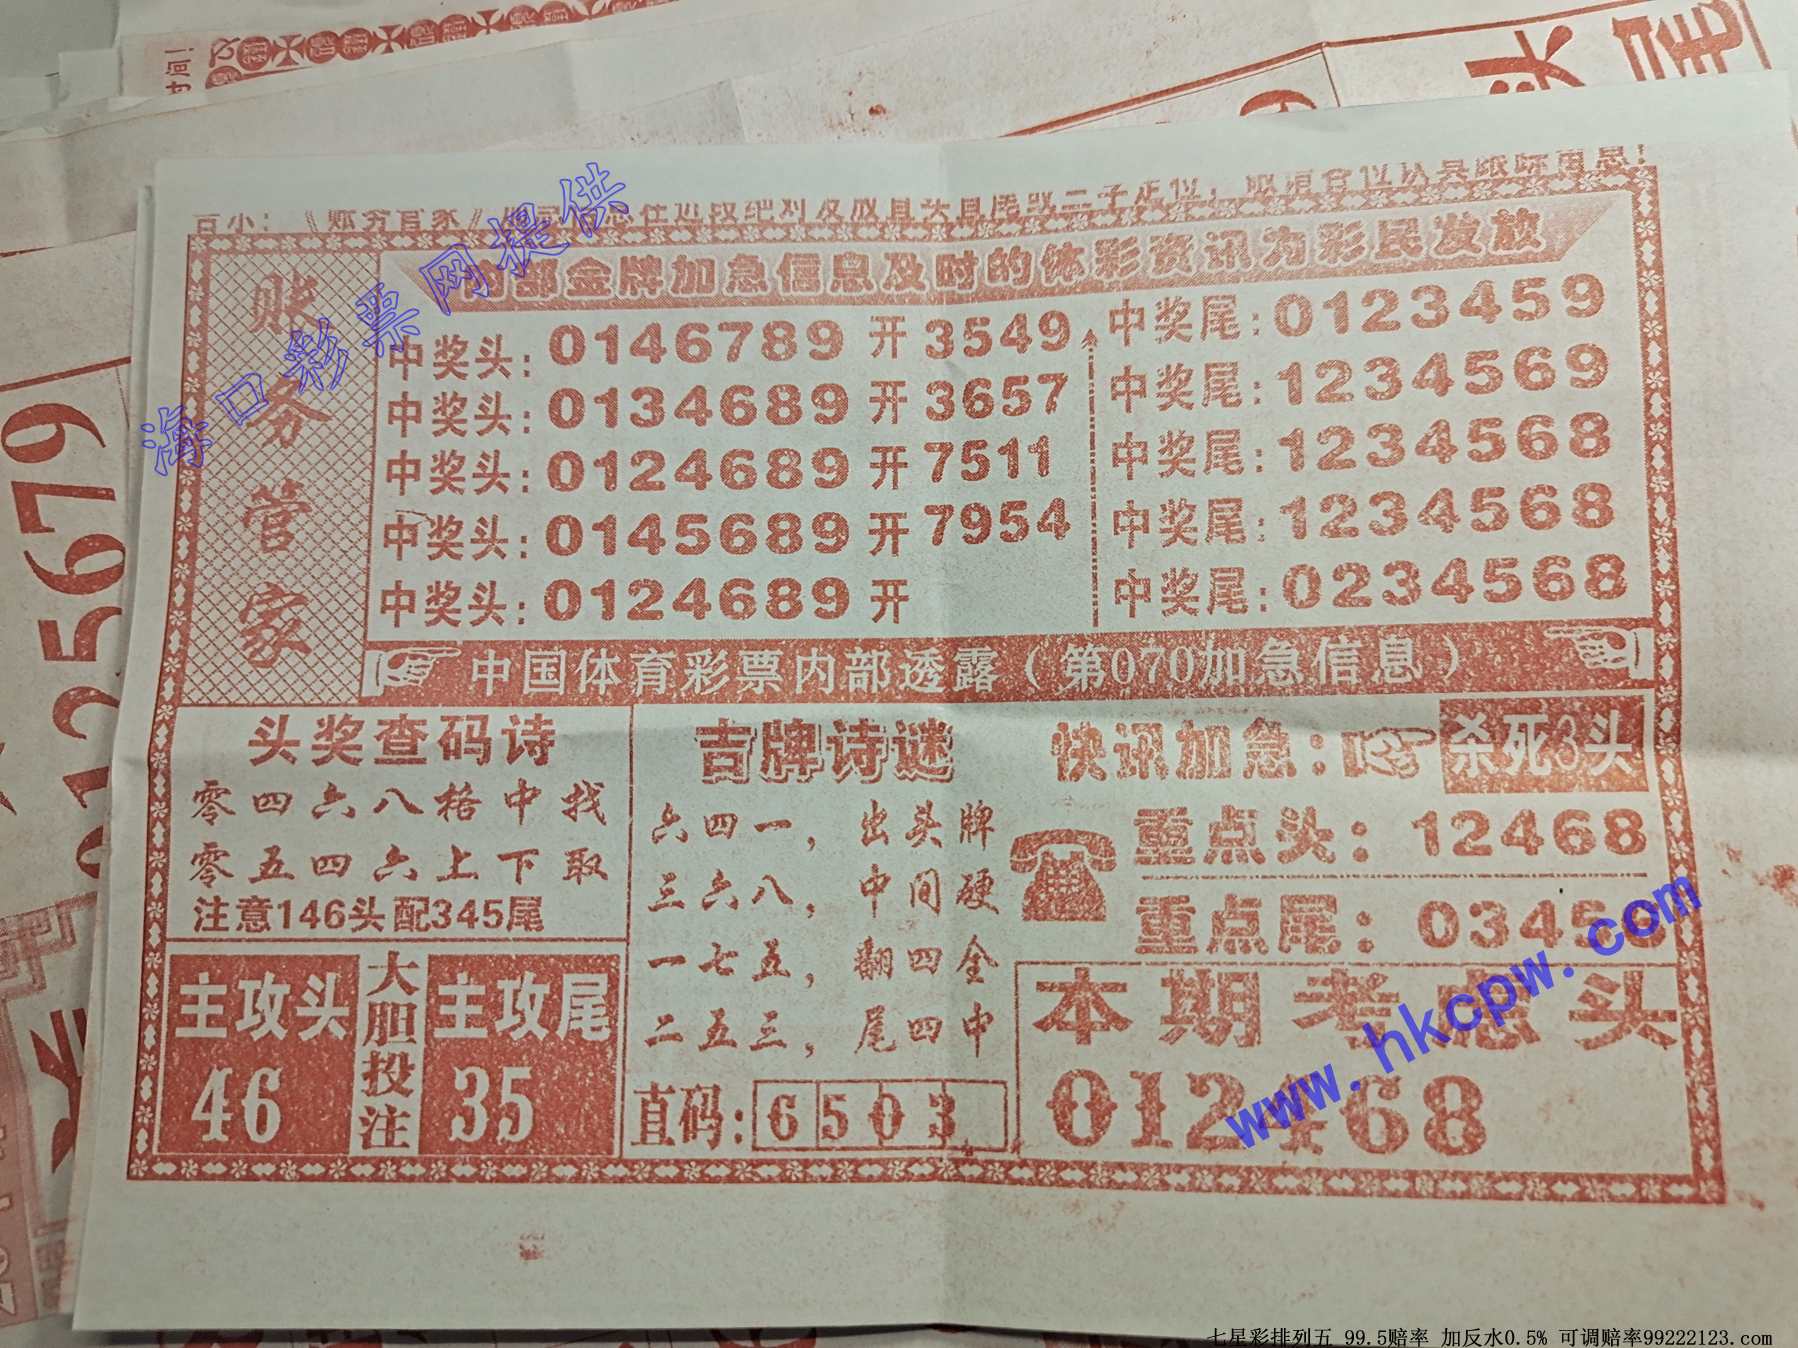 账务管家
内部金牌加急信息及时的体彩资讯为彩民发放
中奖头:0146789开3549 中奖尾:0123459
中奖头:0134689开3657 中奖尾:1234569
中奖头:0124689开7511 中奖尾:1234568
中奖头:0145689开7954 中奖尾:1234568
中奖头:0124689开 中奖尾:0234568
中国体育彩票内部透露(第070加急信息)
头奖查码诗
零四六八格中找
零五四六上下取
注意146头配345尾
主攻头
46
大胆投注
主攻尾
35
吉牌诗谜
六四一,出头牌
三六八,中间硬
一七五,翻四全
二五三,尾四中
直码:6503
快讯加急:
杀死3头
重点头:12468
重点尾:03456
本期考虑头
012468
海口彩票网提供
www.hkcpw.com
0125679
头尾
时间!
七星彩排列五 99.5赔率 加反水0.5% 可调赔率99222123.com